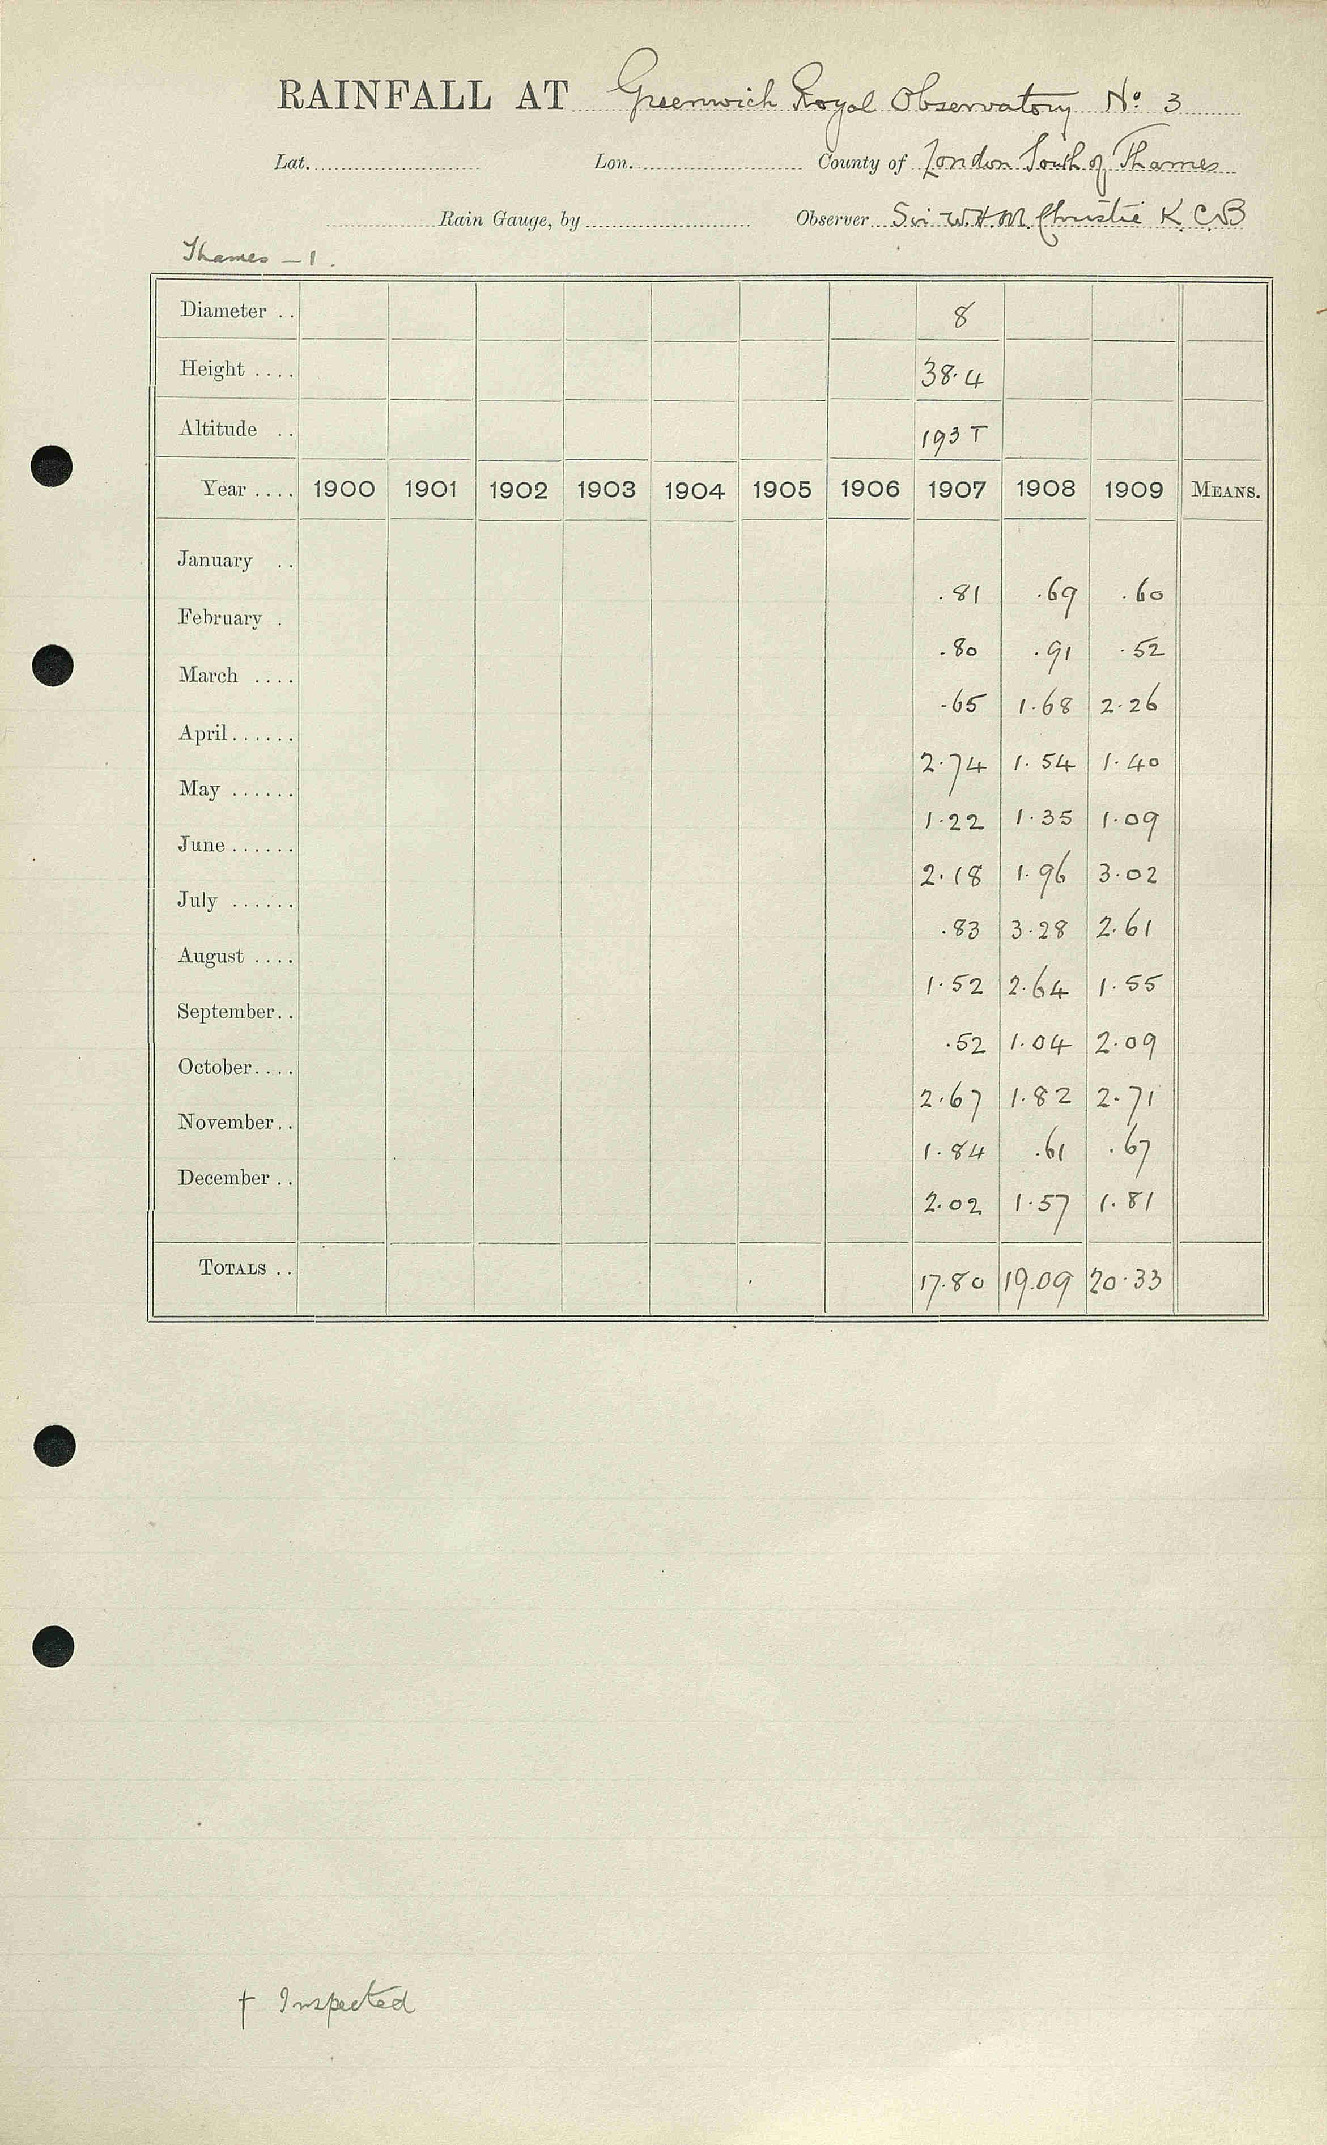 RAINFALL AT Greenwich Royal Observatory No. 3
Lat. Lon. County of London South of Thames
Rain Gauge, by Observer Sir W.H.M. Christie K.C.B
Thames - 1.
Diameter .. 8
Height .... 38.4
Altitude .. 193 T
Year .... 1900 1901 1902 1903 1904 1905 1906 1907 1908 1909 MEANS.
January .. .81 .69 .60
February . .80 .91 .52
March .... .65 1.68 2.26
April...... 2.74 1.54 1.40
May ...... 1.22 1.35 1.09
June ...... 2.18 1.96 3.02
July ...... .83 3.28 2.61
August .... 1.52 2.64 1.55
September.. .52 1.04 2.09
October.... 2.67 1.82 2.71
November.. 1.84 .61 .67
December .. 2.02 1.57 1.81
TOTALS .. 17.80 19.09 20.33
† Inspected